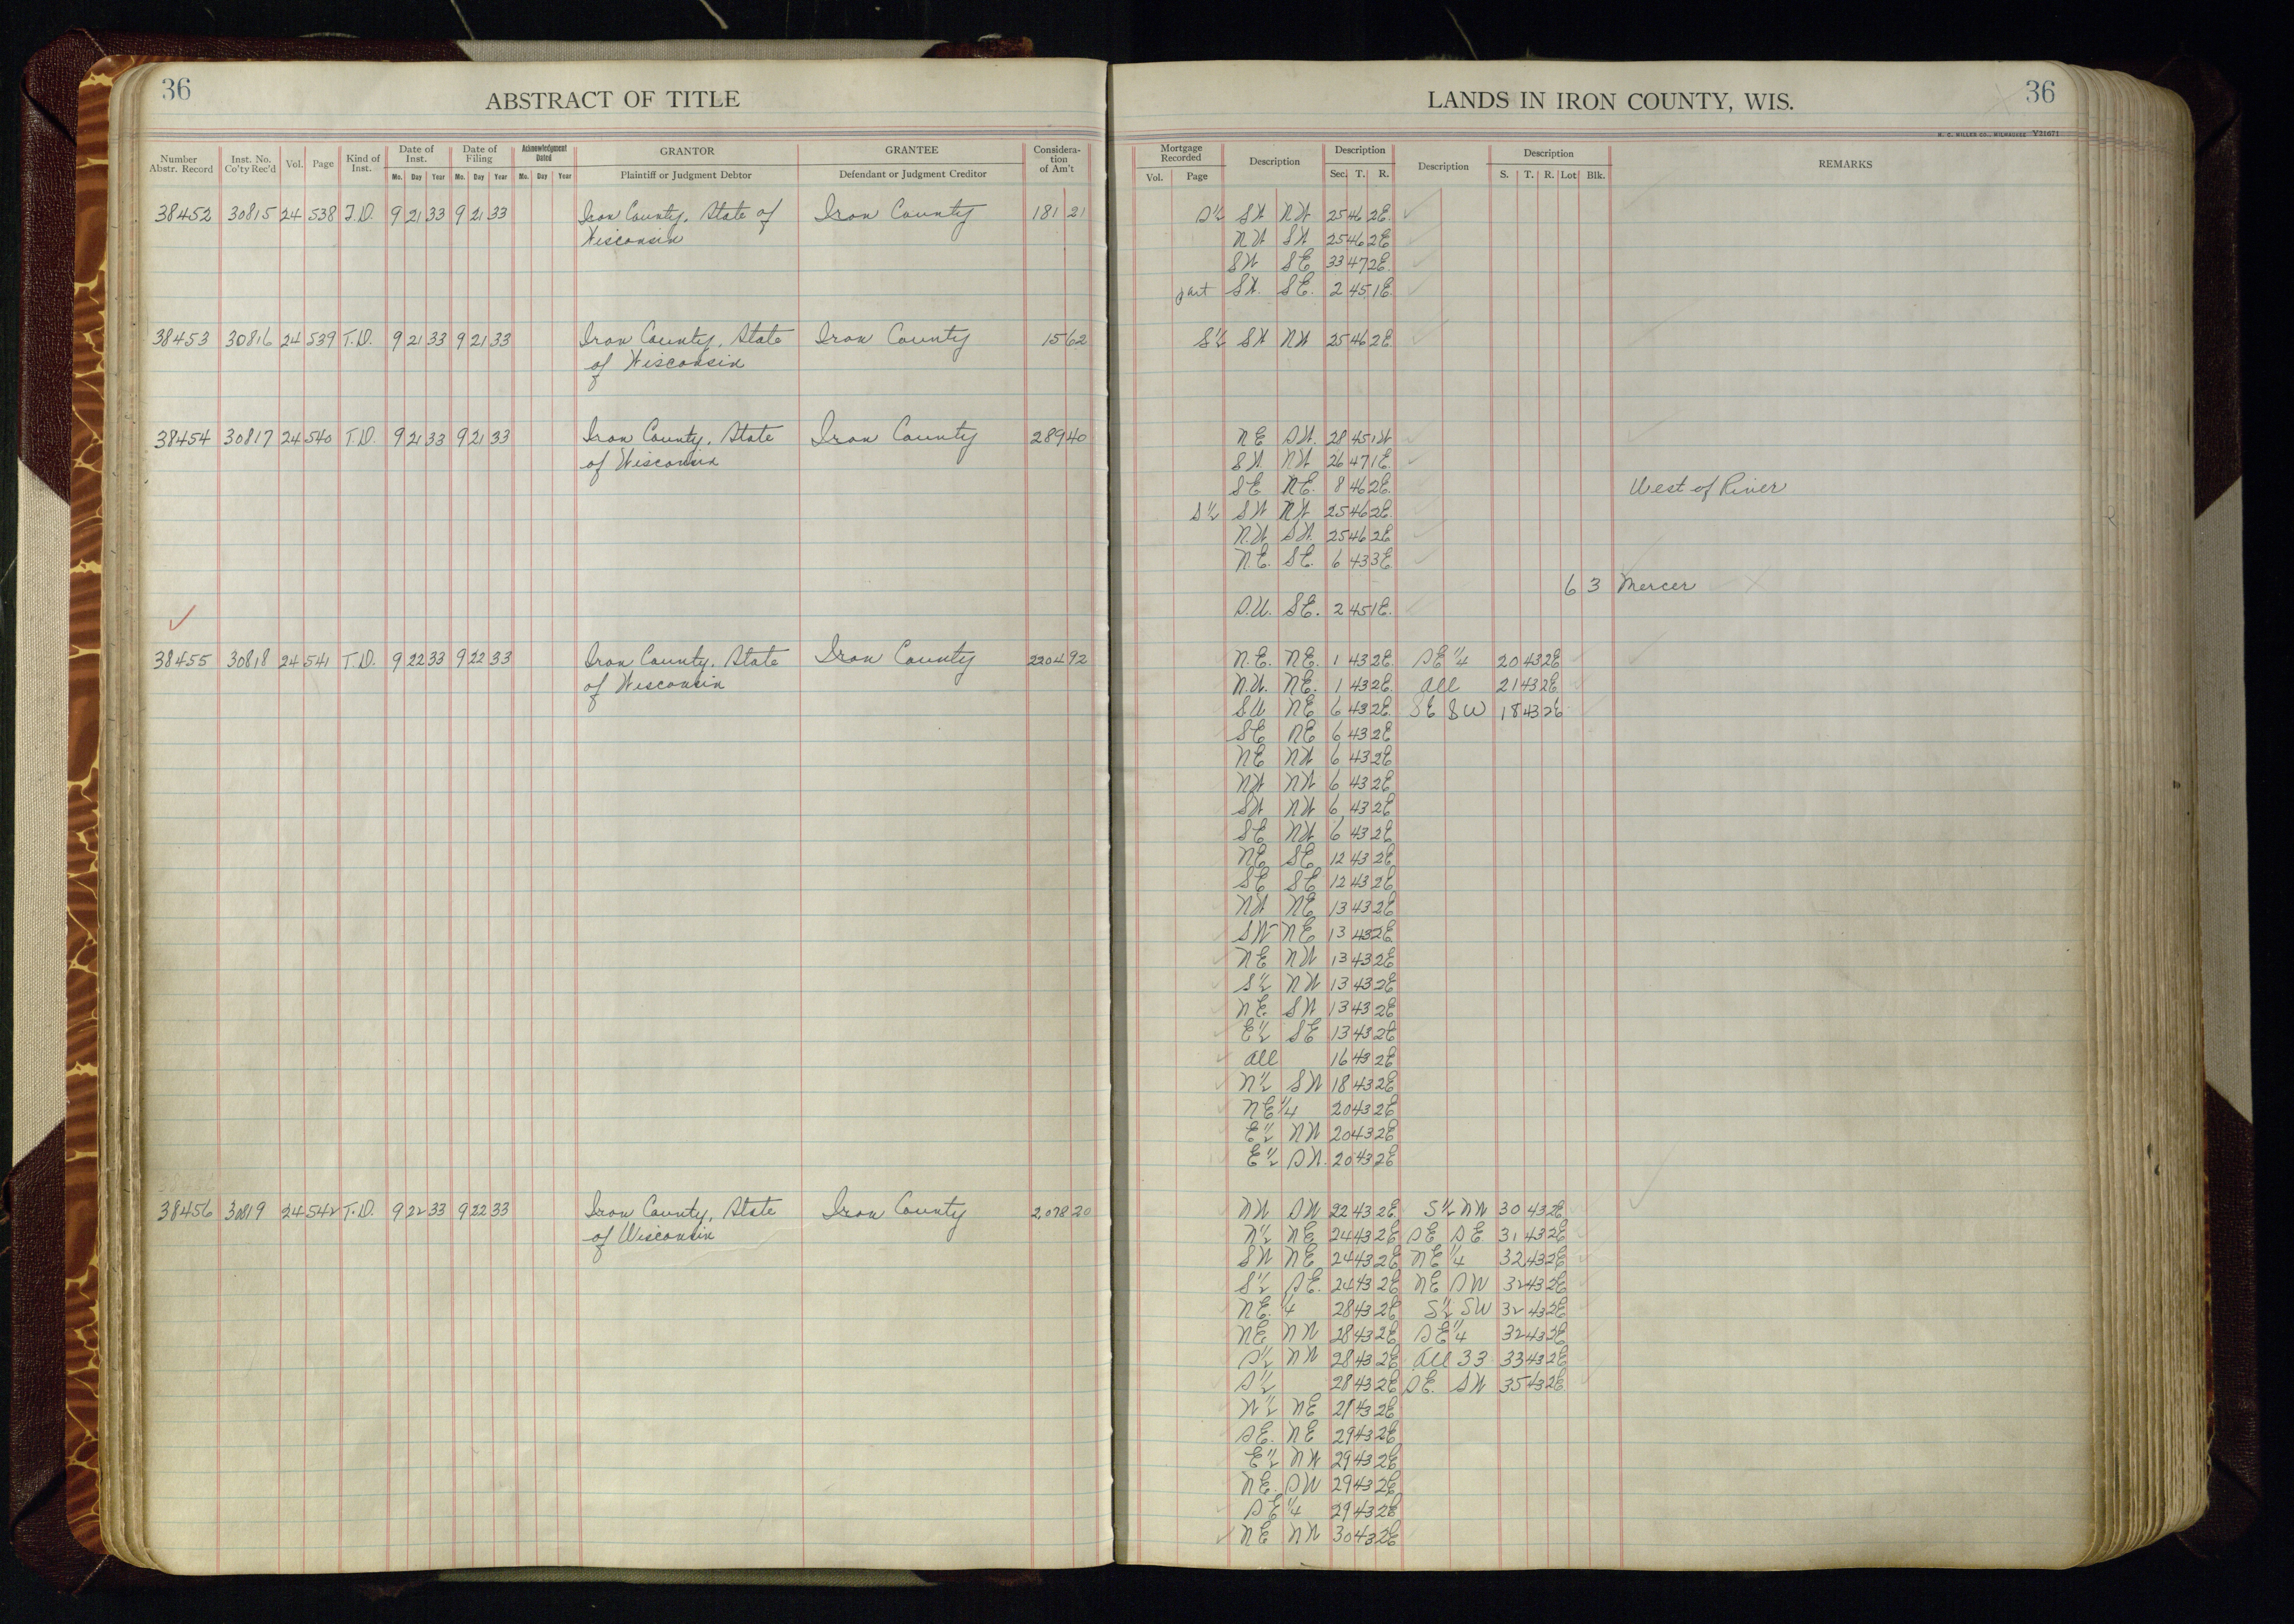 36
ABSTRACT OF TITLE
Number Abstr. Record
Inst. No. Co'ty Rec'd
Vol.
Page
Kind of Inst.
Date of Inst.
Mo. Day Year
Date of Filing
Mo. Day Year
Acknowledgment Dated
Mo. Day Year
GRANTOR
Plaintiff or Judgment Debtor
GRANTEE
Defendant or Judgment Creditor
Considera-tion of Am't
LANDS IN IRON COUNTY, WIS.
36
H. C. MILLER CO., MILWAUKEE Y21671
Mortgage Recorded
Vol. Page
Description
Description
Sec. T. R.
Description
Description
S. T. R. Lot Blk.
REMARKS
38452 30815 24 538 T.D. 9 21 33 9 21 33 Iron County, State of Iron County 181 21 S½ SW NW 25 46 2E.
Wisconsin NW SW 25 46 2E
SW SE 33 47 2E.
part SW. SE. 2 45 1E.
38453 30816 24 539 T.D. 9 21 33 9 21 33 Iron County, State Iron County 15 62 S½ SW NW 25 46 2E.
of Wisconsin
38454 30817 24 540 T.D. 9 21 33 9 21 33 Iron County, State Iron County 289 40 NE SW. 28 45 1W
of Wisconsin SW. NW. 26 47 1E.
SE NE. 8 46 2E. West of River
S½ SW NW 25 46 2E.
N.W. SW. 25 46 2E
N.E. SE. 6 43 3E
6 3 Mercer
S.W. SE. 2 45 1E.
38455 30818 24 541 T.D. 9 22 33 9 22 33 Iron County, State Iron County 2204 92 N.E. NE. 1 43 2E. SE ¼ 20 43 2E
of Wisconsin N.W. NE. 1 43 2E. all 21 43 2E
SW NE 6 43 2E. SE SW 18 43 2E
SE NE 6 43 2E
NE NW 6 43 2E
NW NW 6 43 2E
SW NW 6 43 2E
SE NW 6 43 2E
NE SE 12 43 2E
SE SE 12 43 2E
NW NE 13 43 2E
SW NE 13 43 2E
NE NW 13 43 2E
S½ NW 13 43 2E
NE SW 13 43 2E
E½ SE 13 43 2E
all 16 43 2E
N½ SW 18 43 2E
NE ¼ 20 43 2E
E½ NW 20 43 2E
E½ SW. 20 43 2E
38456 30819 24 542 T.D. 9 22 33 9 22 33 Iron County, State Iron County 2078 20 NW SW 22 43 2E. S½ NW 30 43 2E
of Wisconsin N½ NE 24 43 2E SE SE 31 43 2E
SW NE 24 43 2E NE ¼ 32 43 2E
S½ SE. 24 43 2E NE SW 32 43 2E
NE. ¼ 28 43 2E S½ SW 32 43 2E
NE NW 28 43 2E SE ¼ 32 43 2E
S½ NW 28 43 2E all 33 33 43 2E
S½ 28 43 2E SE. SW 35 43 2E
N½ NE 29 43 2E
SE. NE 29 43 2E
E½ NW 29 43 2E
NE. SW 29 43 2E
SE ¼ 29 43 2E
NE NW 30 43 2E